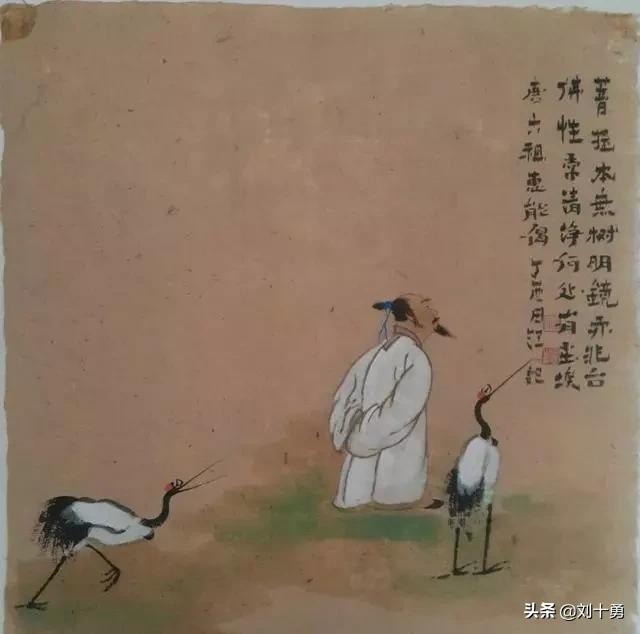 菩提本無树明鏡亦非台
佛性常清净何处有尘埃
唐六祖惠能偈 丁
头条 @刘十勇